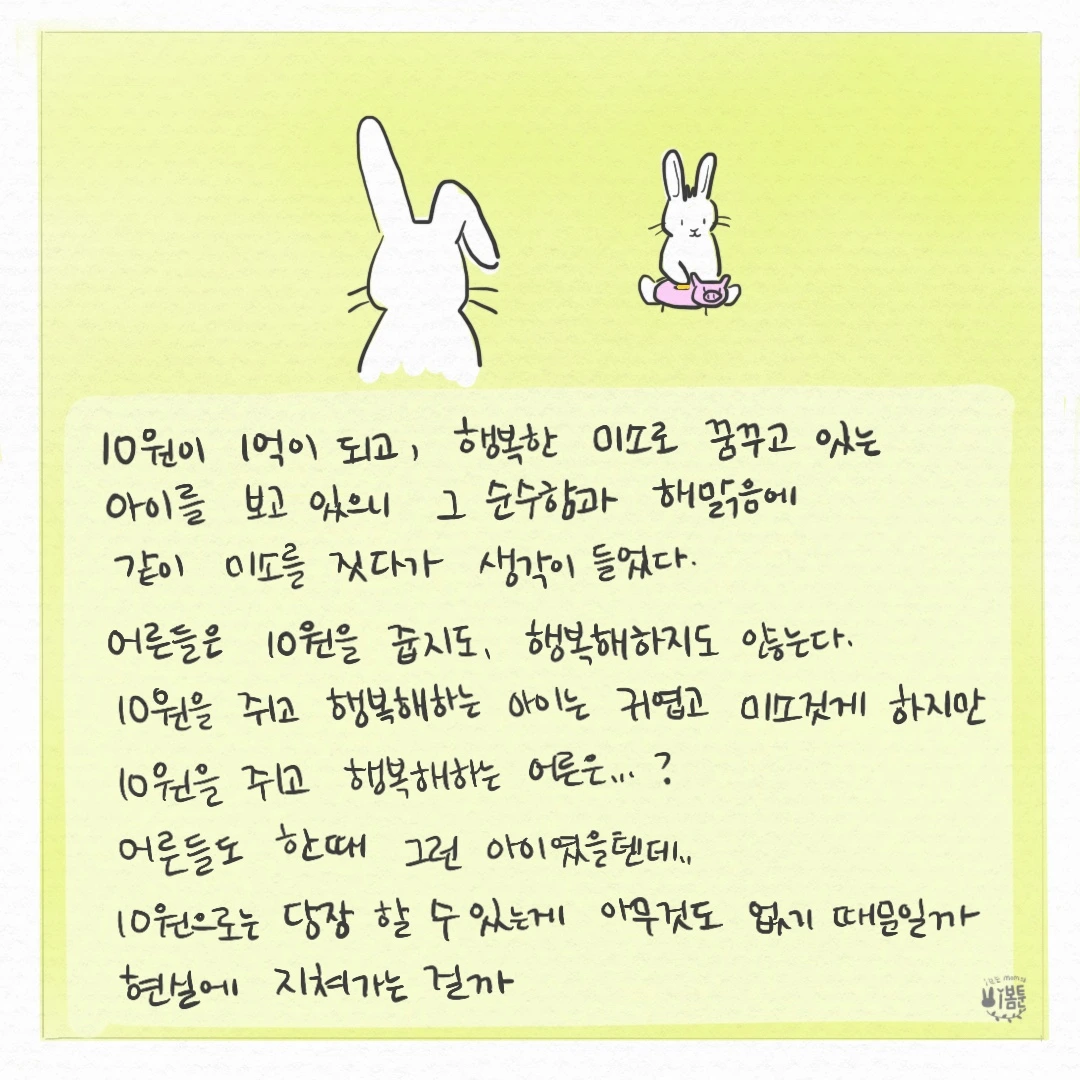 10원이 1억이 되고, 행복한 미소로 꿈꾸고 있는
아이를 보고 있으니 그 순수함과 해맑음에
같이 미소를 짓다가 생각이 들었다.
어른들은 10원을 줍지도, 행복해하지도 않는다.
10원을 쥐고 행복해하는 아이는 귀엽고 미소짓게 하지만
10원을 쥐고 행복해하는 어른은... ?
어른들도 한때 그런 아이였을텐데..
10원으로는 당장 할 수 있는게 아무것도 없기 때문일까
현실에 지쳐가는 걸까
봄툰